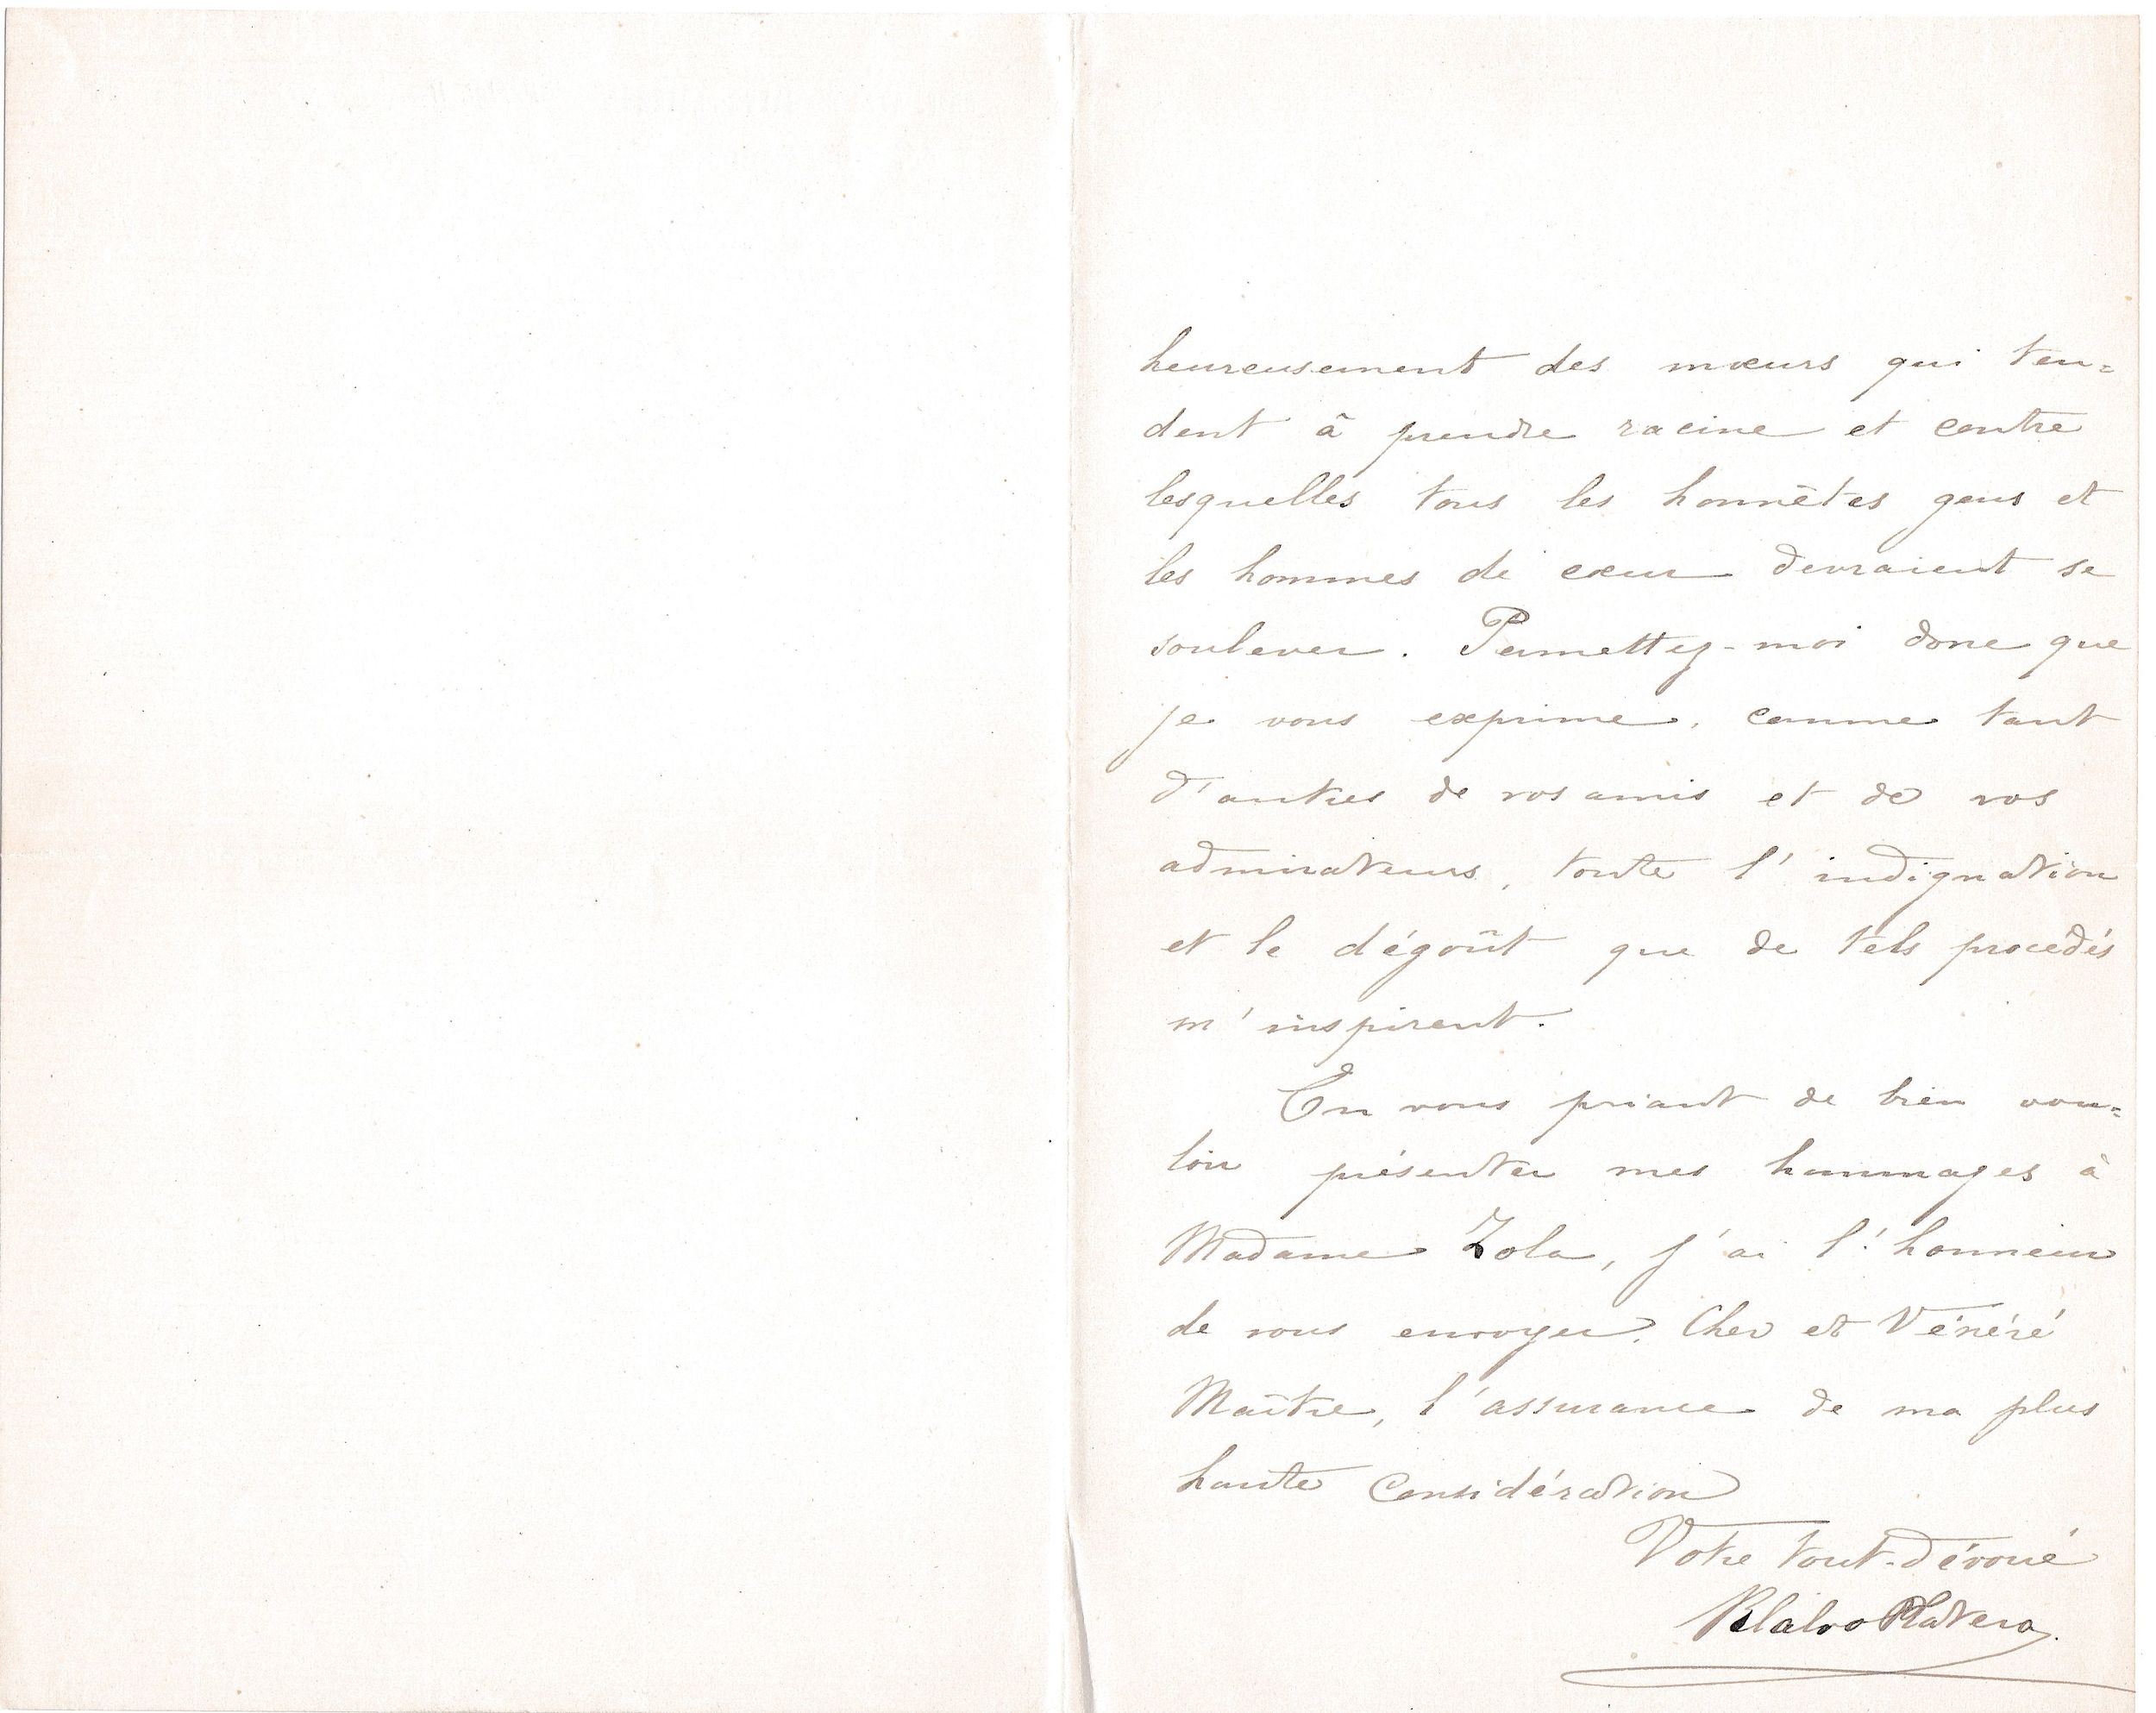 heureusement des mœurs qui ten=
dent à prendre racine et contre
lesquelles tous les honnêtes gens et
les hommes de cœur devraient se
soulever. Permettez-moi donc que
je vous exprime, comme tant
d'autres de vos amis et de vos
admirateurs, toute l'indignation
et le dégoût que de tels procédés
m'inspirent.
En vous priant de bien vou=
loir présenter mes hommages à
Madame Zola, j'ai l'honneur
de vous envoyer, Cher et Vénéré
Maître, l'assurance de ma plus
haute Considération
Votre tout-dévoué